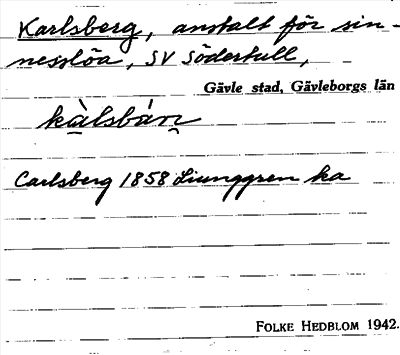 Karlsberg, anstalt för sin-
nesslöa, SV Södertull,
Gävle stad, Gävleborgs län
Carlsberg 1858 Ljunggren ka
FOLKE HEDBLOM 1942.